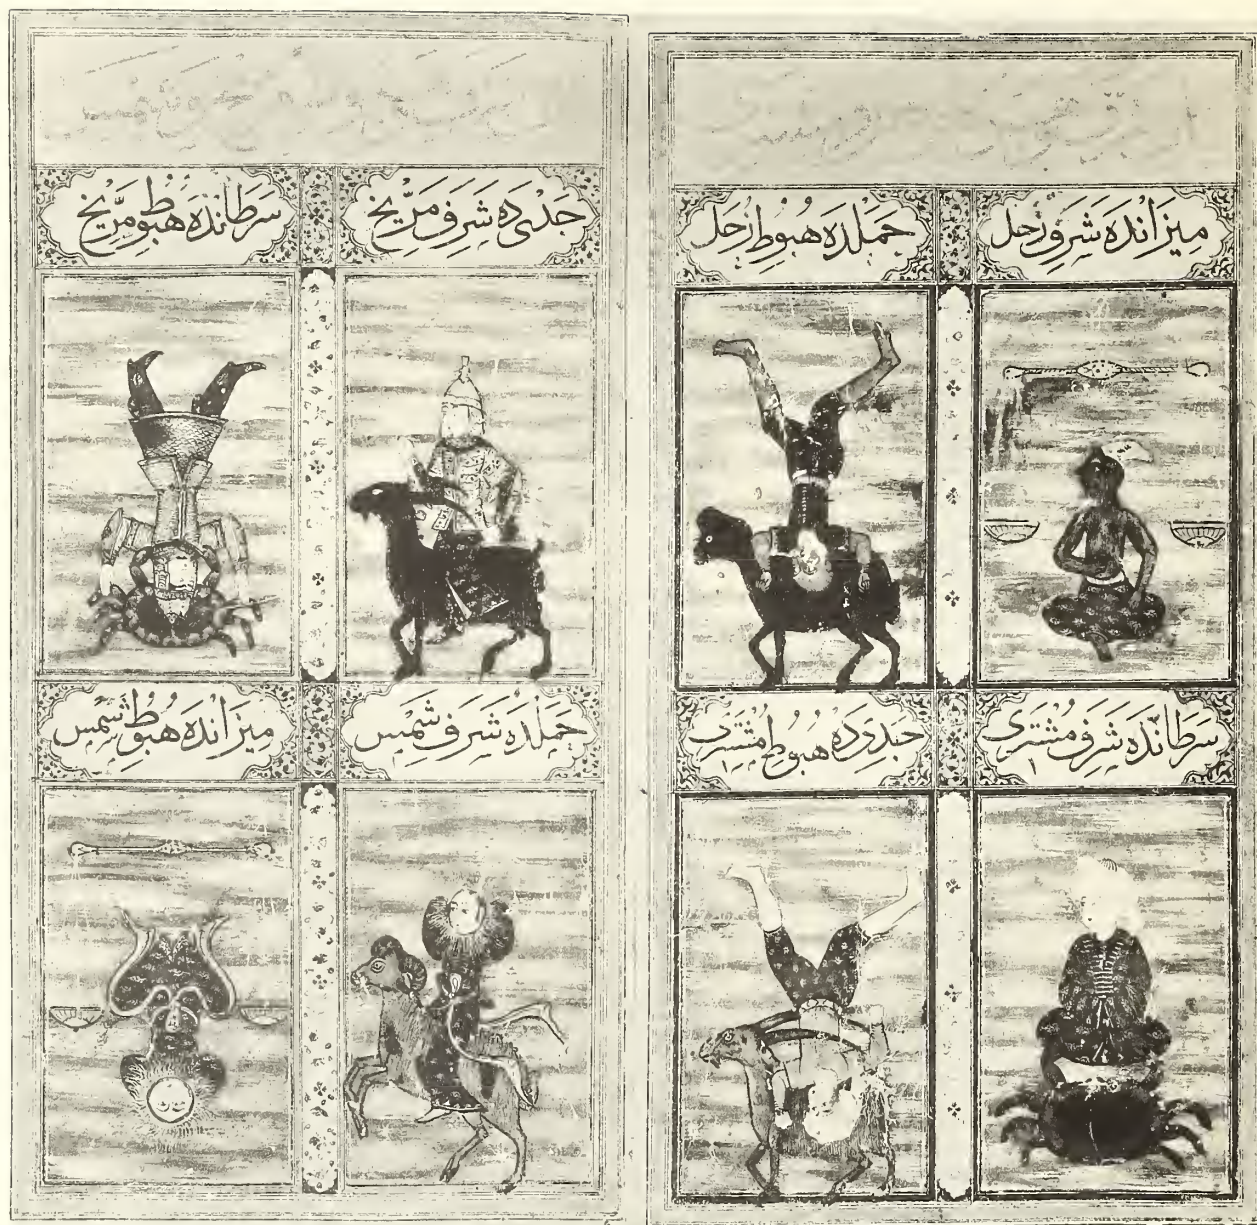 مِيزَانْدَه شَرَفِ زُحَل
حَمَلْدَه هُبُوطِ زُحَل
سَرَطَانْدَه شَرَفِ مُشْتَرِى
جَدْىِ دَه هُبُوطِ مُشْتَرِى
جَدْىِ دَه شَرَفِ مَرِّيخ
سَرَطَانْدَه هُبُوطِ مَرِّيخ
حَمَلْدَه شَرَفِ شَمْس
مِيزَانْدَه هُبُوطِ شَمْس